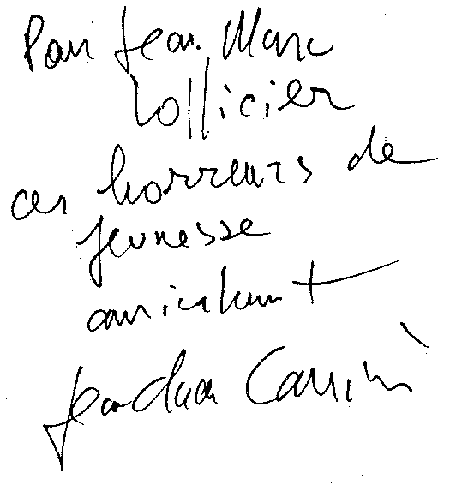 Pour Jean-Marc
Lofficier
ces horreurs de
jeunesse
amicalement
Jean-Claude Carrière